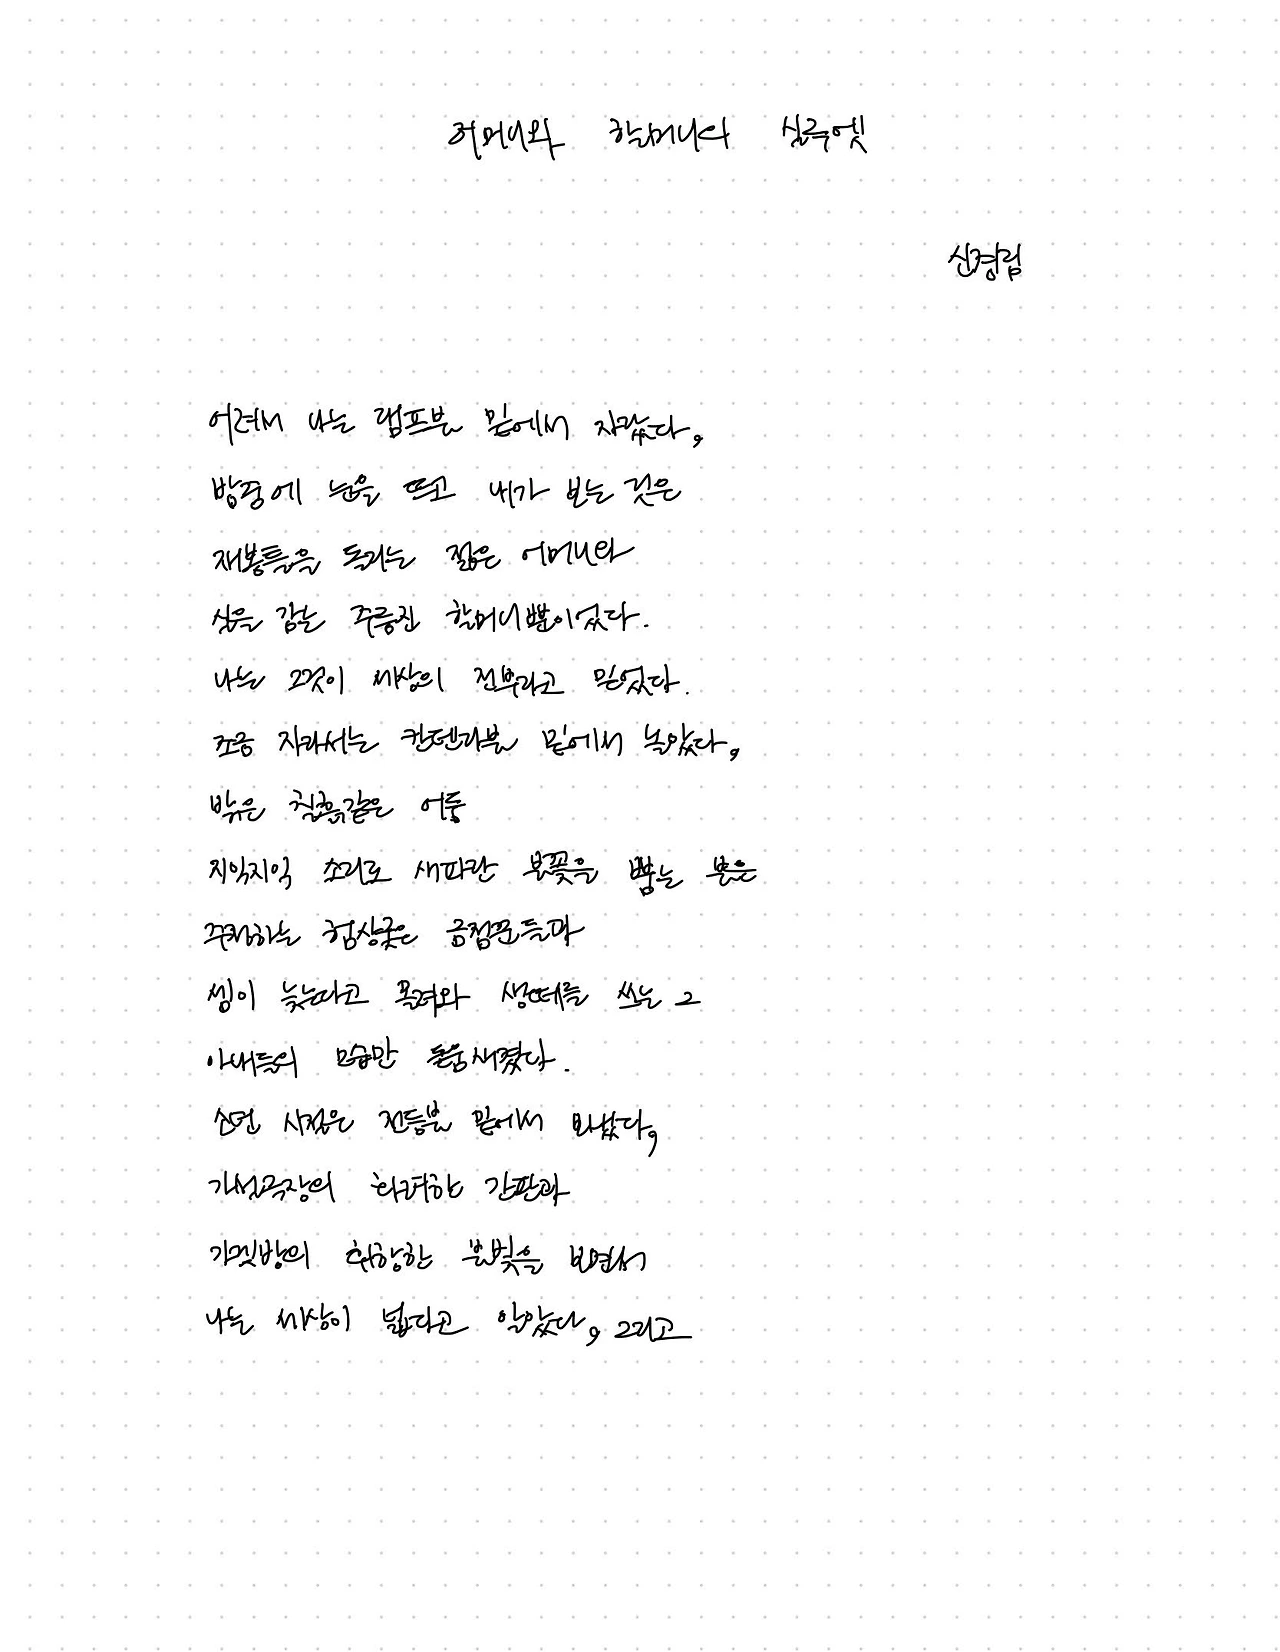 어머니와 할머니의 실루엣
신경림
어려서 나는 램프불 밑에서 자랐다,
밤중에 눈을 뜨고 내가 보는 것은
재봉틀을 돌리는 젊은 어머니와
실을 감는 주름진 할머니뿐이었다.
나는 그것이 세상의 전부라고 믿었다.
조금 자라서는 칸델라불 밑에서 놀았다,
밖은 칠흙같은 어둠
지익지익 소리로 새파란 불꽃을 뿜는 불은
주정하는 험상궂은 금점꾼들과
셈이 늦는다고 몰려와 생떼를 쓰는 그
아내들의 모습만 돋움새겼다.
소년 시절은 전등불 밑에서 보냈다,
가설극장의 화려한 간판과
가겟방의 휘황한 불빛을 보면서
나는 세상이 넓다고 알았다, 그리고